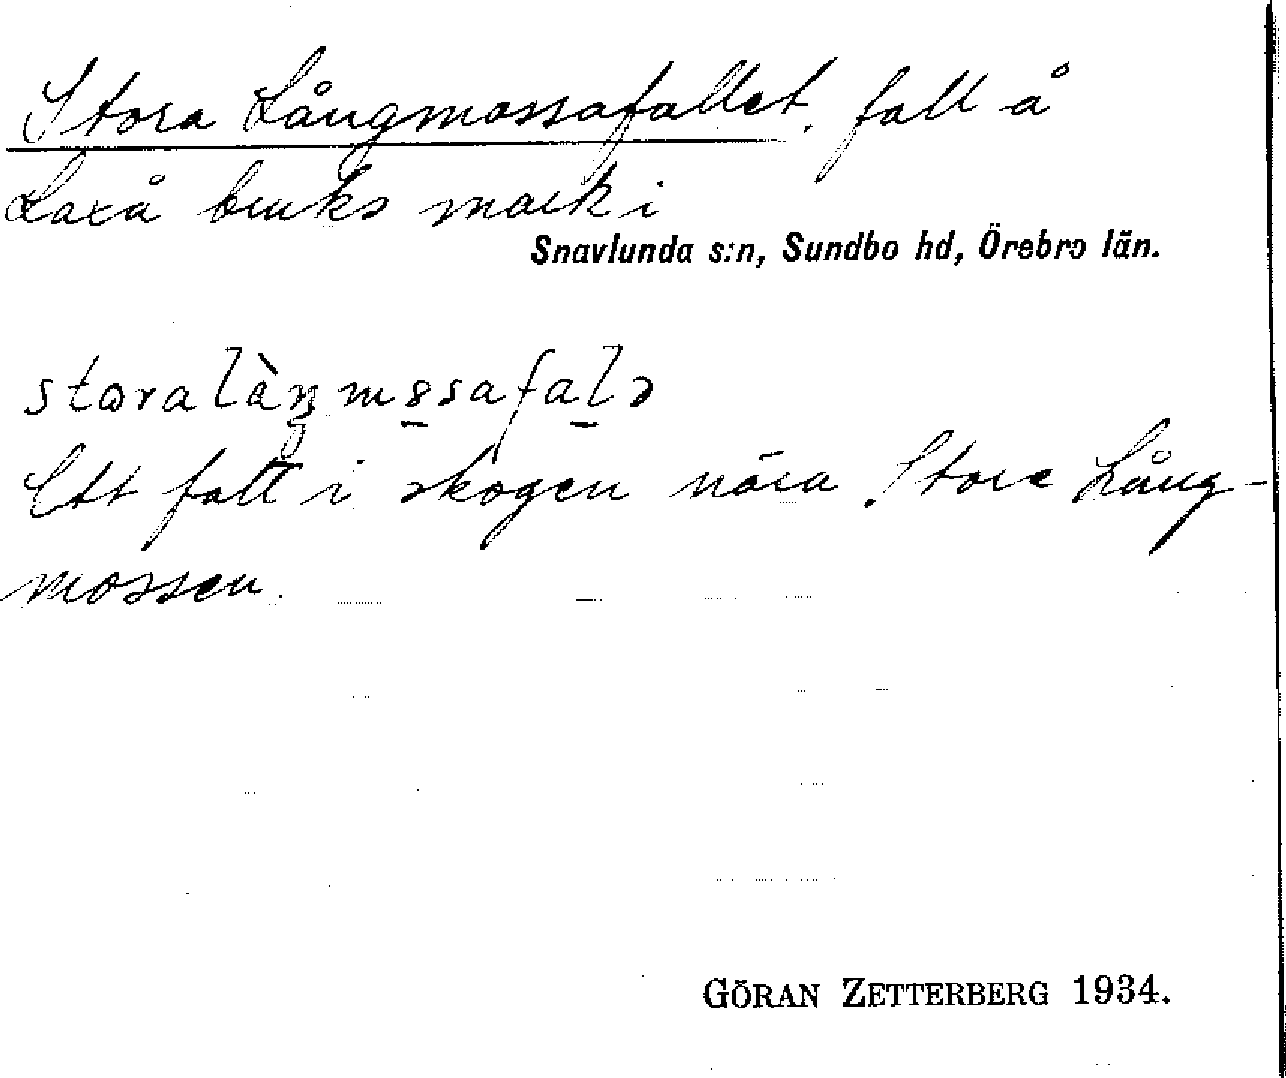 Stora Långmossafallet, fall å
Laxå bruks mark i
Snavlunda s:n, Sundbo hd, Örebro län.
Ett fall i skogen nära Stora Lång-
mossen.
GÖRAN ZETTERBERG 1934.